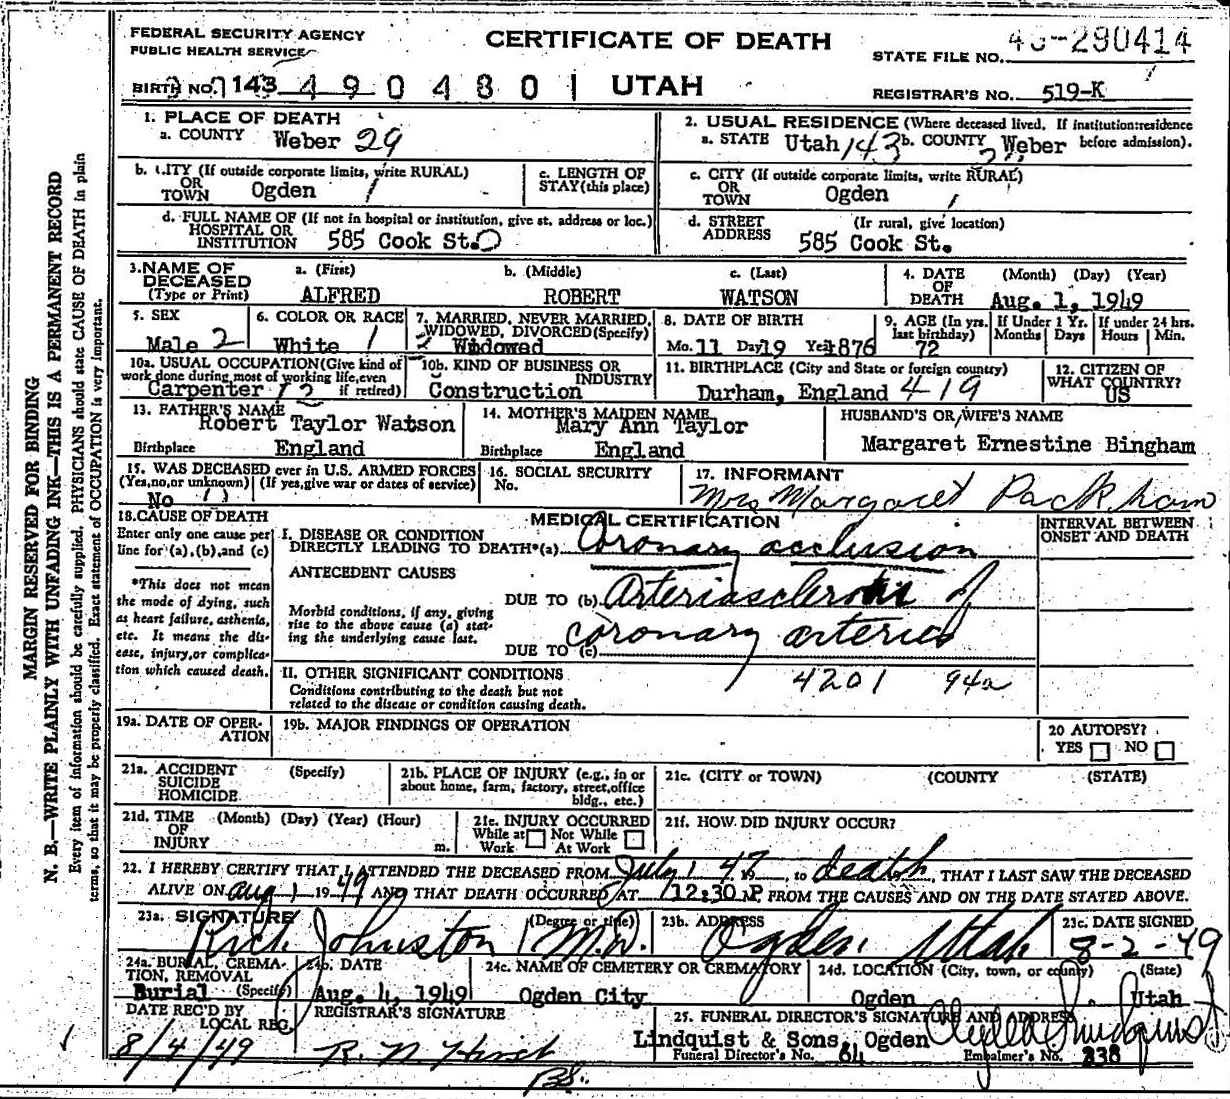 FEDERAL SECURITY AGENCY
PUBLIC HEALTH SERVICE
CERTIFICATE OF DEATH
STATE FILE NO. 49-290414
BIRTH NO. 143 4 9 0 4 8 0 1 UTAH
REGISTRAR'S NO. 519-K
MARGIN RESERVED FOR BINDING
N. B.—WRITE PLAINLY WITH UNFADING INK—THIS IS A PERMANENT RECORD
Every item of information should be carefully supplied. PHYSICIANS should state CAUSE OF DEATH in plain
terms, so that it may be properly classified. Exact statement of OCCUPATION is very important.
1. PLACE OF DEATH
a. COUNTY Weber 29
2. USUAL RESIDENCE (Where deceased lived. If institution:residence
a. STATE Utah 143 b. COUNTY Weber before admission).
b. CITY (If outside corporate limits, write RURAL)
OR
TOWN Ogden 1
c. LENGTH OF
STAY (this place)
c. CITY (If outside corporate limits, write RURAL)
OR
TOWN Ogden 1
d. FULL NAME OF (If not in hospital or institution, give st. address or loc.)
HOSPITAL OR
INSTITUTION 585 Cook St. 0
d. STREET (If rural, give location)
ADDRESS 585 Cook St.
3. NAME OF
DECEASED
(Type or Print)
a. (First) ALFRED
b. (Middle) ROBERT
c. (Last) WATSON
4. DATE OF DEATH (Month) (Day) (Year)
Aug. 1, 1949
5. SEX
Male 2
6. COLOR OR RACE
White 1
7. MARRIED, NEVER MARRIED,
WIDOWED, DIVORCED (Specify)
Widowed
8. DATE OF BIRTH
Mo. 11 Day 19 Year 1876
9. AGE (In yrs. last birthday)
72
If Under 1 Yr.
Months Days
If under 24 hrs.
Hours Min.
10a. USUAL OCCUPATION (Give kind of
work done during most of working life, even
if retired)
Carpenter 12
10b. KIND OF BUSINESS OR
INDUSTRY
Construction
11. BIRTHPLACE (City and State or foreign country)
Durham, England 419
12. CITIZEN OF
WHAT COUNTRY?
US
13. FATHER'S NAME
Robert Taylor Watson
Birthplace England
14. MOTHER'S MAIDEN NAME
Mary Ann Taylor
Birthplace England
HUSBAND'S OR WIFE'S NAME
Margaret Ernestine Bingham
15. WAS DECEASED ever in U.S. ARMED FORCES
(Yes, no, or unknown) (If yes, give war or dates of service)
No
16. SOCIAL SECURITY
No.
17. INFORMANT
Mrs Margaret Packham
18. CAUSE OF DEATH
Enter only one cause per
line for (a), (b), and (c)
*This does not mean
the mode of dying, such
as heart failure, asthenia,
etc. It means the dis-
ease, injury, or complica-
tion which caused death.
MEDICAL CERTIFICATION
INTERVAL BETWEEN
ONSET AND DEATH
I. DISEASE OR CONDITION
DIRECTLY LEADING TO DEATH*(a) Coronary occlusion
ANTECEDENT CAUSES
Morbid conditions, if any, giving
rise to the above cause (a) stat-
ing the underlying cause last.
DUE TO (b) Arteriosclerotis of
DUE TO (c) coronary arteries
II. OTHER SIGNIFICANT CONDITIONS
Conditions contributing to the death but not
related to the disease or condition causing death.
4201 94a
19a. DATE OF OPER-
ATION
19b. MAJOR FINDINGS OF OPERATION
20 AUTOPSY?
YES NO
21a. ACCIDENT
SUICIDE
HOMICIDE
(Specify)
21b. PLACE OF INJURY (e.g., in or
about home, farm, factory, street, office
bldg., etc.)
21c. (CITY or TOWN) (COUNTY (STATE)
21d. TIME (Month) (Day) (Year) (Hour)
OF
INJURY m.
21e. INJURY OCCURRED
While at Work
Not While At Work
21f. HOW DID INJURY OCCUR?
22. I HEREBY CERTIFY THAT I ATTENDED THE DECEASED FROM July 1 47, to death, THAT I LAST SAW THE DECEASED
ALIVE ON Aug 1 1949 AND THAT DEATH OCCURRED AT 12:30 P M, FROM THE CAUSES AND ON THE DATE STATED ABOVE.
23a. SIGNATURE (Degree or title)
Rich Johnston M.D.
23b. ADDRESS
Ogden, Utah
23c. DATE SIGNED
8-2-49
24a. BURIAL, CREMA-
TION, REMOVAL
(Specify)
Burial
24b. DATE
Aug. 4, 1949
24c. NAME OF CEMETERY OR CREMATORY
Ogden City
24d. LOCATION (City, town, or county) (State)
Ogden Utah
DATE REC'D BY
LOCAL REG.
8/4/49
REGISTRAR'S SIGNATURE
R. N. Hirst
BS.
25. FUNERAL DIRECTOR'S SIGNATURE AND ADDRESS
Lindquist & Sons, Ogden
Funeral Director's No. 64 Embalmer's No. 238